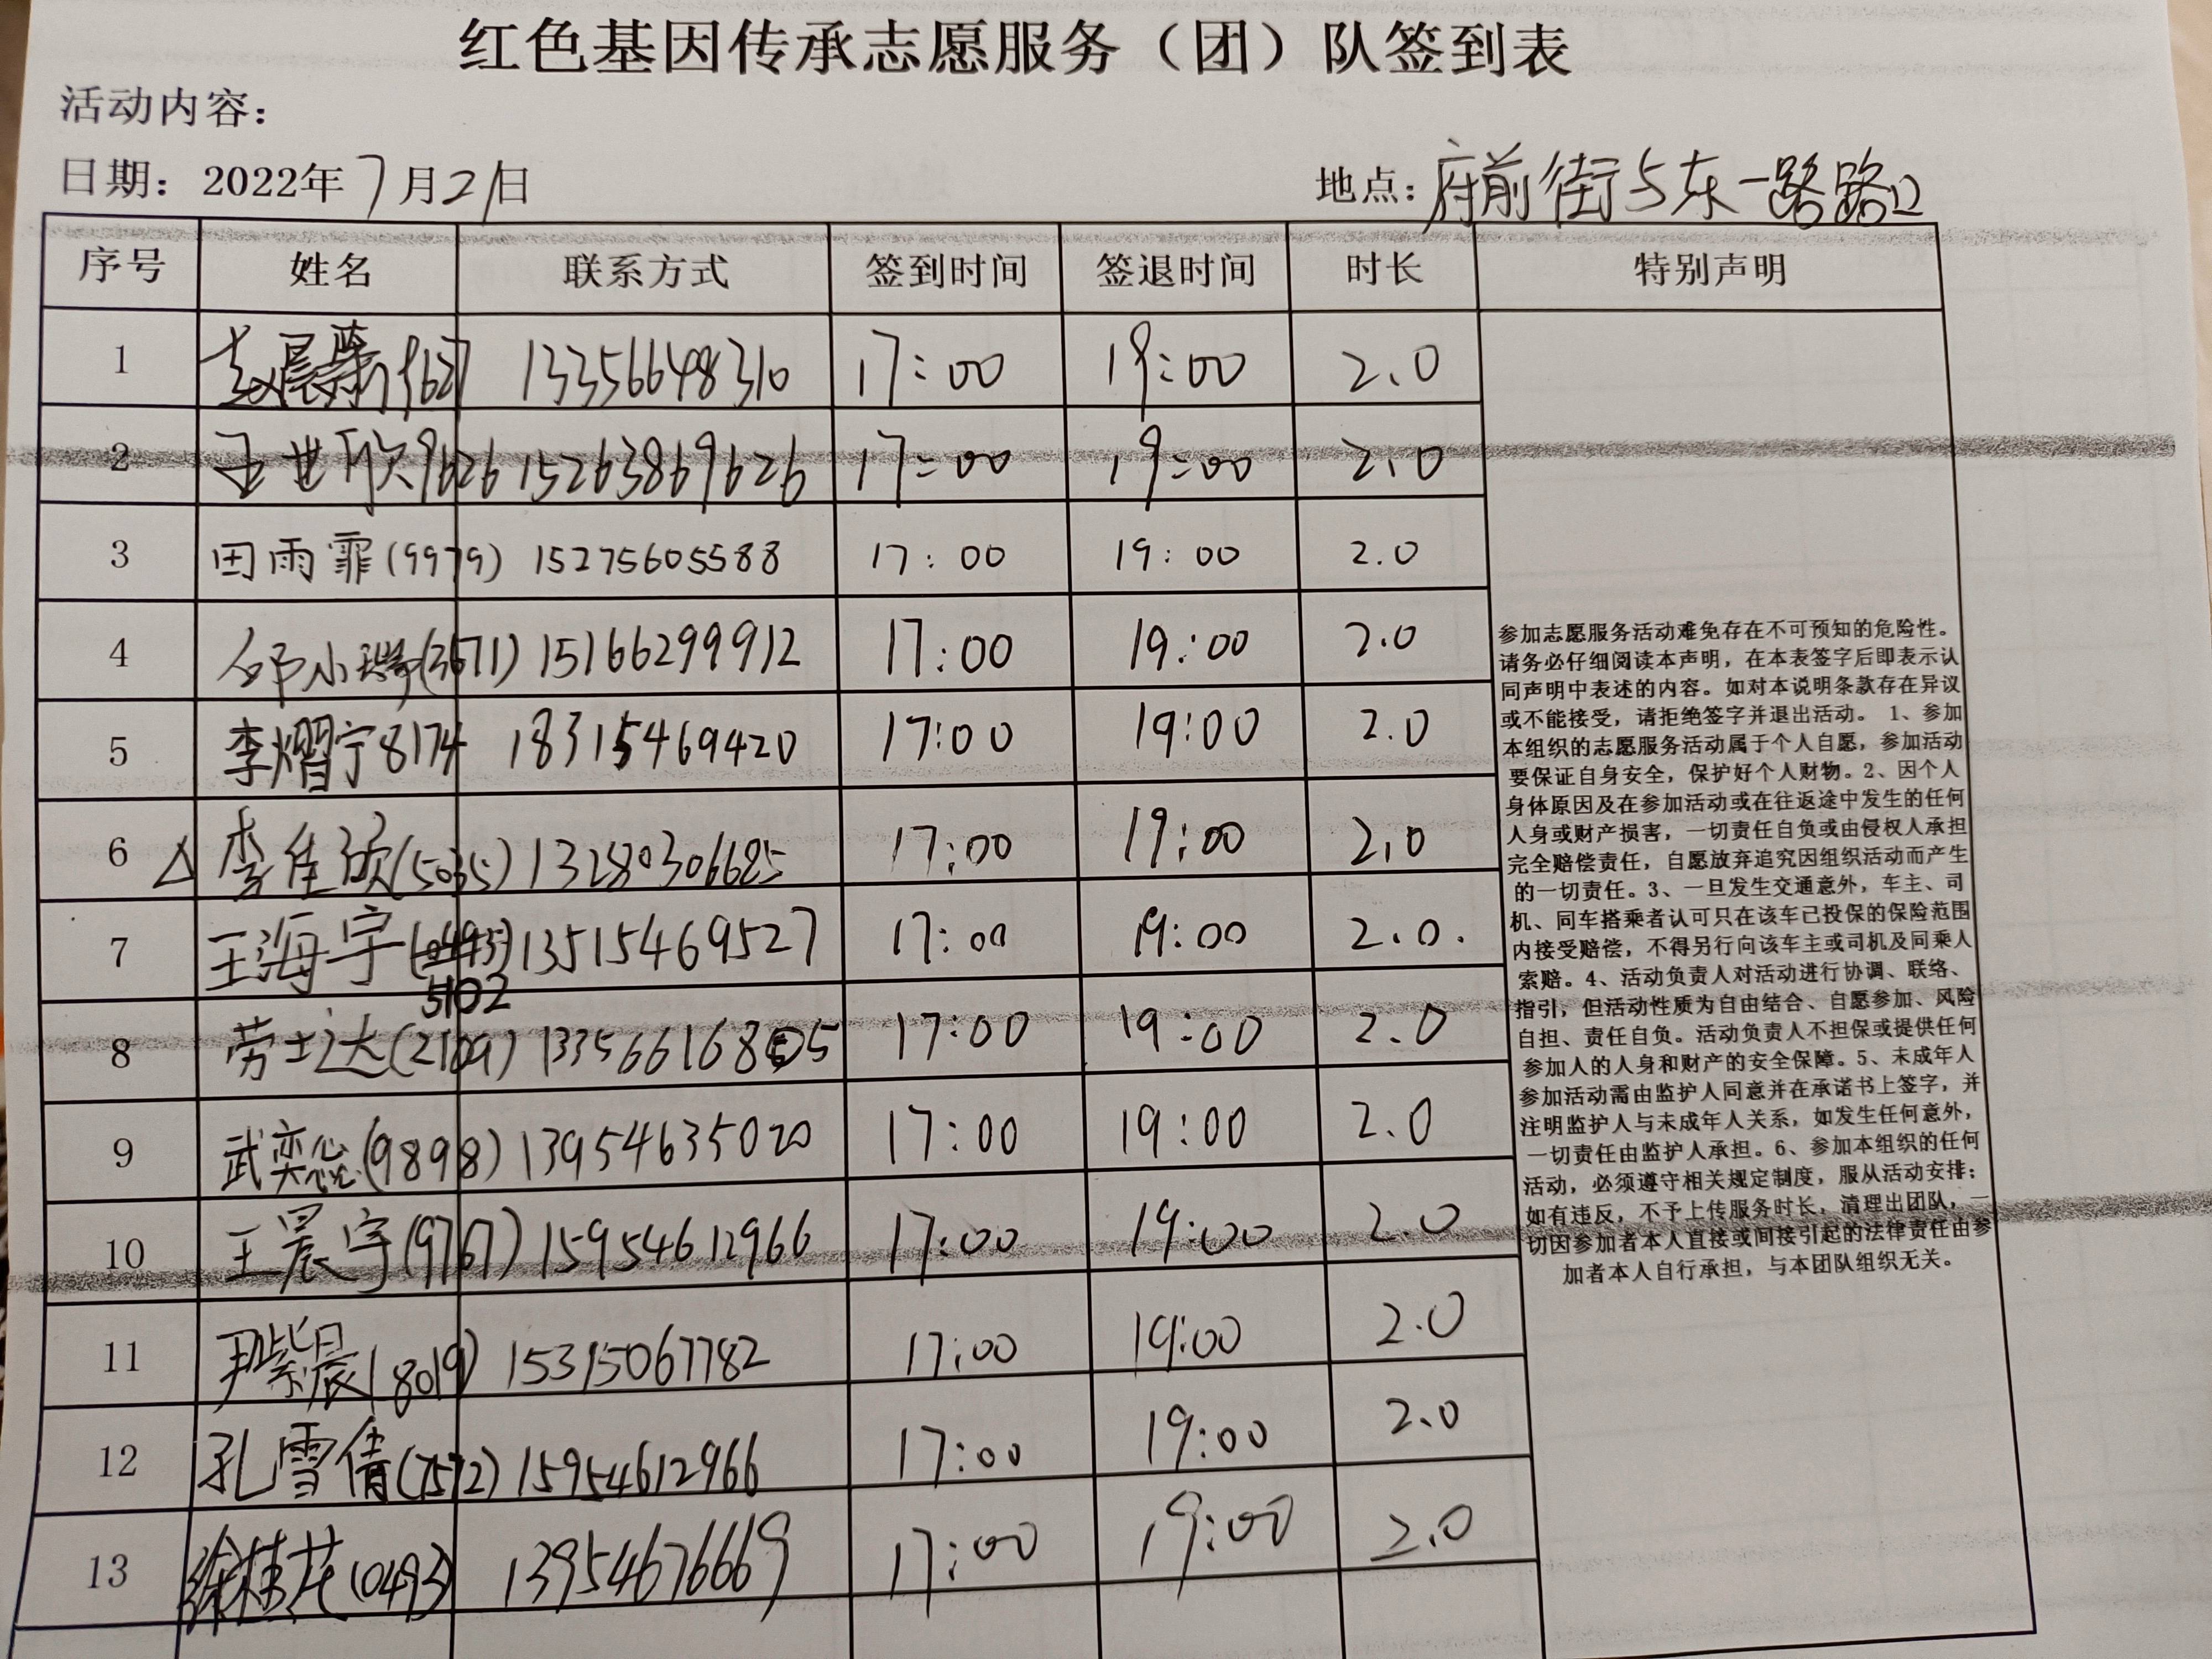 红色基因传承志愿服务（团）队签到表
活动内容：
日期：2022年7月21日 地点：府前街与东一路路口
序号 姓名 联系方式 签到时间 签退时间 时长 特别声明
1 9627 13356648310 17:00 19:00 2.0
2 王世欣9626 15263869626 17:00 19:00 2.0
3 田雨霏(9979) 15275605588 17:00 19:00 2.0
4 邹小瑞(3671) 15166299912 17:00 19:00 2.0
5 李熠宁8174 18315469420 17:00 19:00 2.0
6 △ 李佳欣(5035) 13280306685 17:00 19:00 2.0
7 王海宇 5102 13515469527 17:00 19:00 2.0.
8 劳士达(2109) 17:00 19:00 2.0
9 武奕(9898) 13954635020 17:00 19:00 2.0
10 王晨宇(9767) 15954612966 17:00 19:00 2.0
11 尹紫晨(8019) 15315067782 17:00 19:00 2.0
12 孔雪倩(7572) 15954612966 17:00 19:00 2.0
13 徐桂花(0493) 13954676669 17:00 19:00 2.0
参加志愿服务活动难免存在不可预知的危险性。
请务必仔细阅读本声明，在本表签字后即表示认
同声明中表述的内容。如对本说明条款存在异议
或不能接受，请拒绝签字并退出活动。 1、参加
本组织的志愿服务活动属于个人自愿，参加活动
要保证自身安全，保护好个人财物。2、因个人
身体原因及在参加活动或在往返途中发生的任何
人身或财产损害，一切责任自负或由侵权人承担
完全赔偿责任，自愿放弃追究因组织活动而产生
的一切责任。3、一旦发生交通意外，车主、司
机、同车搭乘者认可只在该车已投保的保险范围
内接受赔偿，不得另行向该车主或司机及同乘人
索赔。4、活动负责人对活动进行协调、联络、
指引，但活动性质为自由结合、自愿参加、风险
自担、责任自负。活动负责人不担保或提供任何
参加人的人身和财产的安全保障。5、未成年人
参加活动需由监护人同意并在承诺书上签字，并
注明监护人与未成年人关系，如发生任何意外，
一切责任由监护人承担。6、参加本组织的任何
活动，必须遵守相关规定制度，服从活动安排；
如有违反，不予上传服务时长，清理出团队，一
切因参加者本人直接或间接引起的法律责任由参
加者本人自行承担，与本团队组织无关。